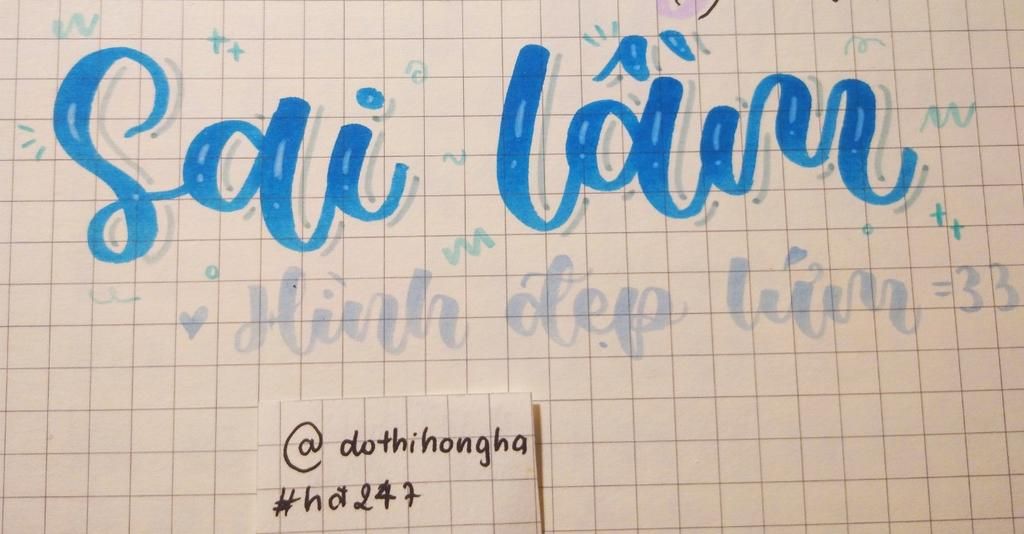 Sai lầm
Hình đẹp lứm =33
@dothihongha
#hđ247